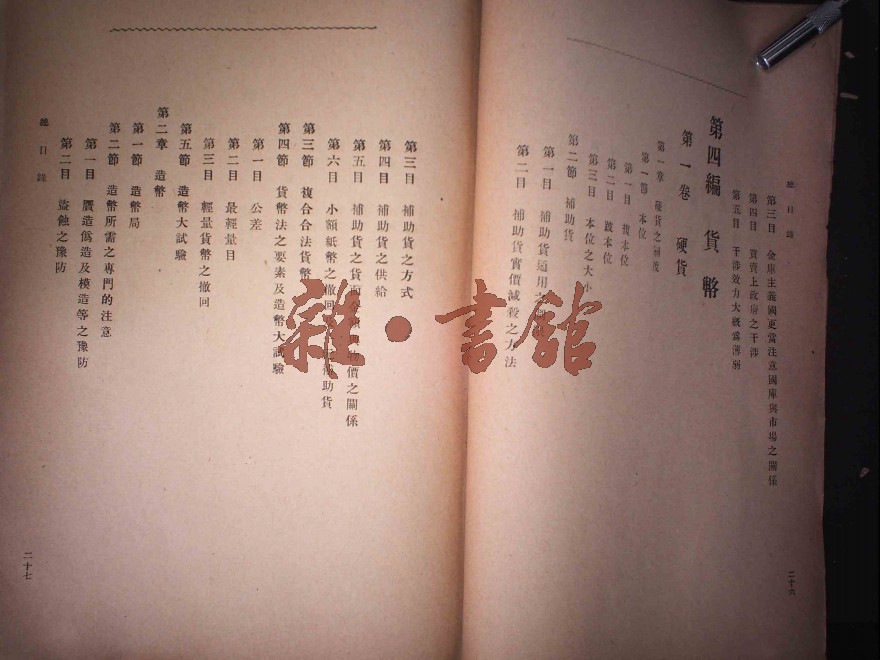 總目錄
第三目 金庫主義國更當注意國庫與市場之關係
第四目 買賣上政府之干涉
第五目 干涉效力大概爲薄弱
第四編 貨幣
第一卷 硬貨
第一章 硬貨之制度
第一節 本位
第一目 複本位
第二目 跛本位
第三目 本位之大小
第二節 補助貨
第一目 補助貨通用之
第二目 補助貨實價減殺之方法
二十六
第三目 補助貨之方式
第四目 補助貨之供給
第五目 補助貨之貨面 價之關係
第六目 小額紙幣之撤回 補助貨
第三節 複合合法貨幣
第四節 貨幣法之要素及造幣大試驗
第一目 公差
第二目 最輕量目
第三目 輕量貨幣之撤回
第五節 造幣大試驗
第二章 造幣
第一節 造幣局
第二節 造幣所需之專門的注意
第一目 贋造僞造及模造等之豫防
第二目 盜蝕之豫防
總目錄
二十七
雜·書館